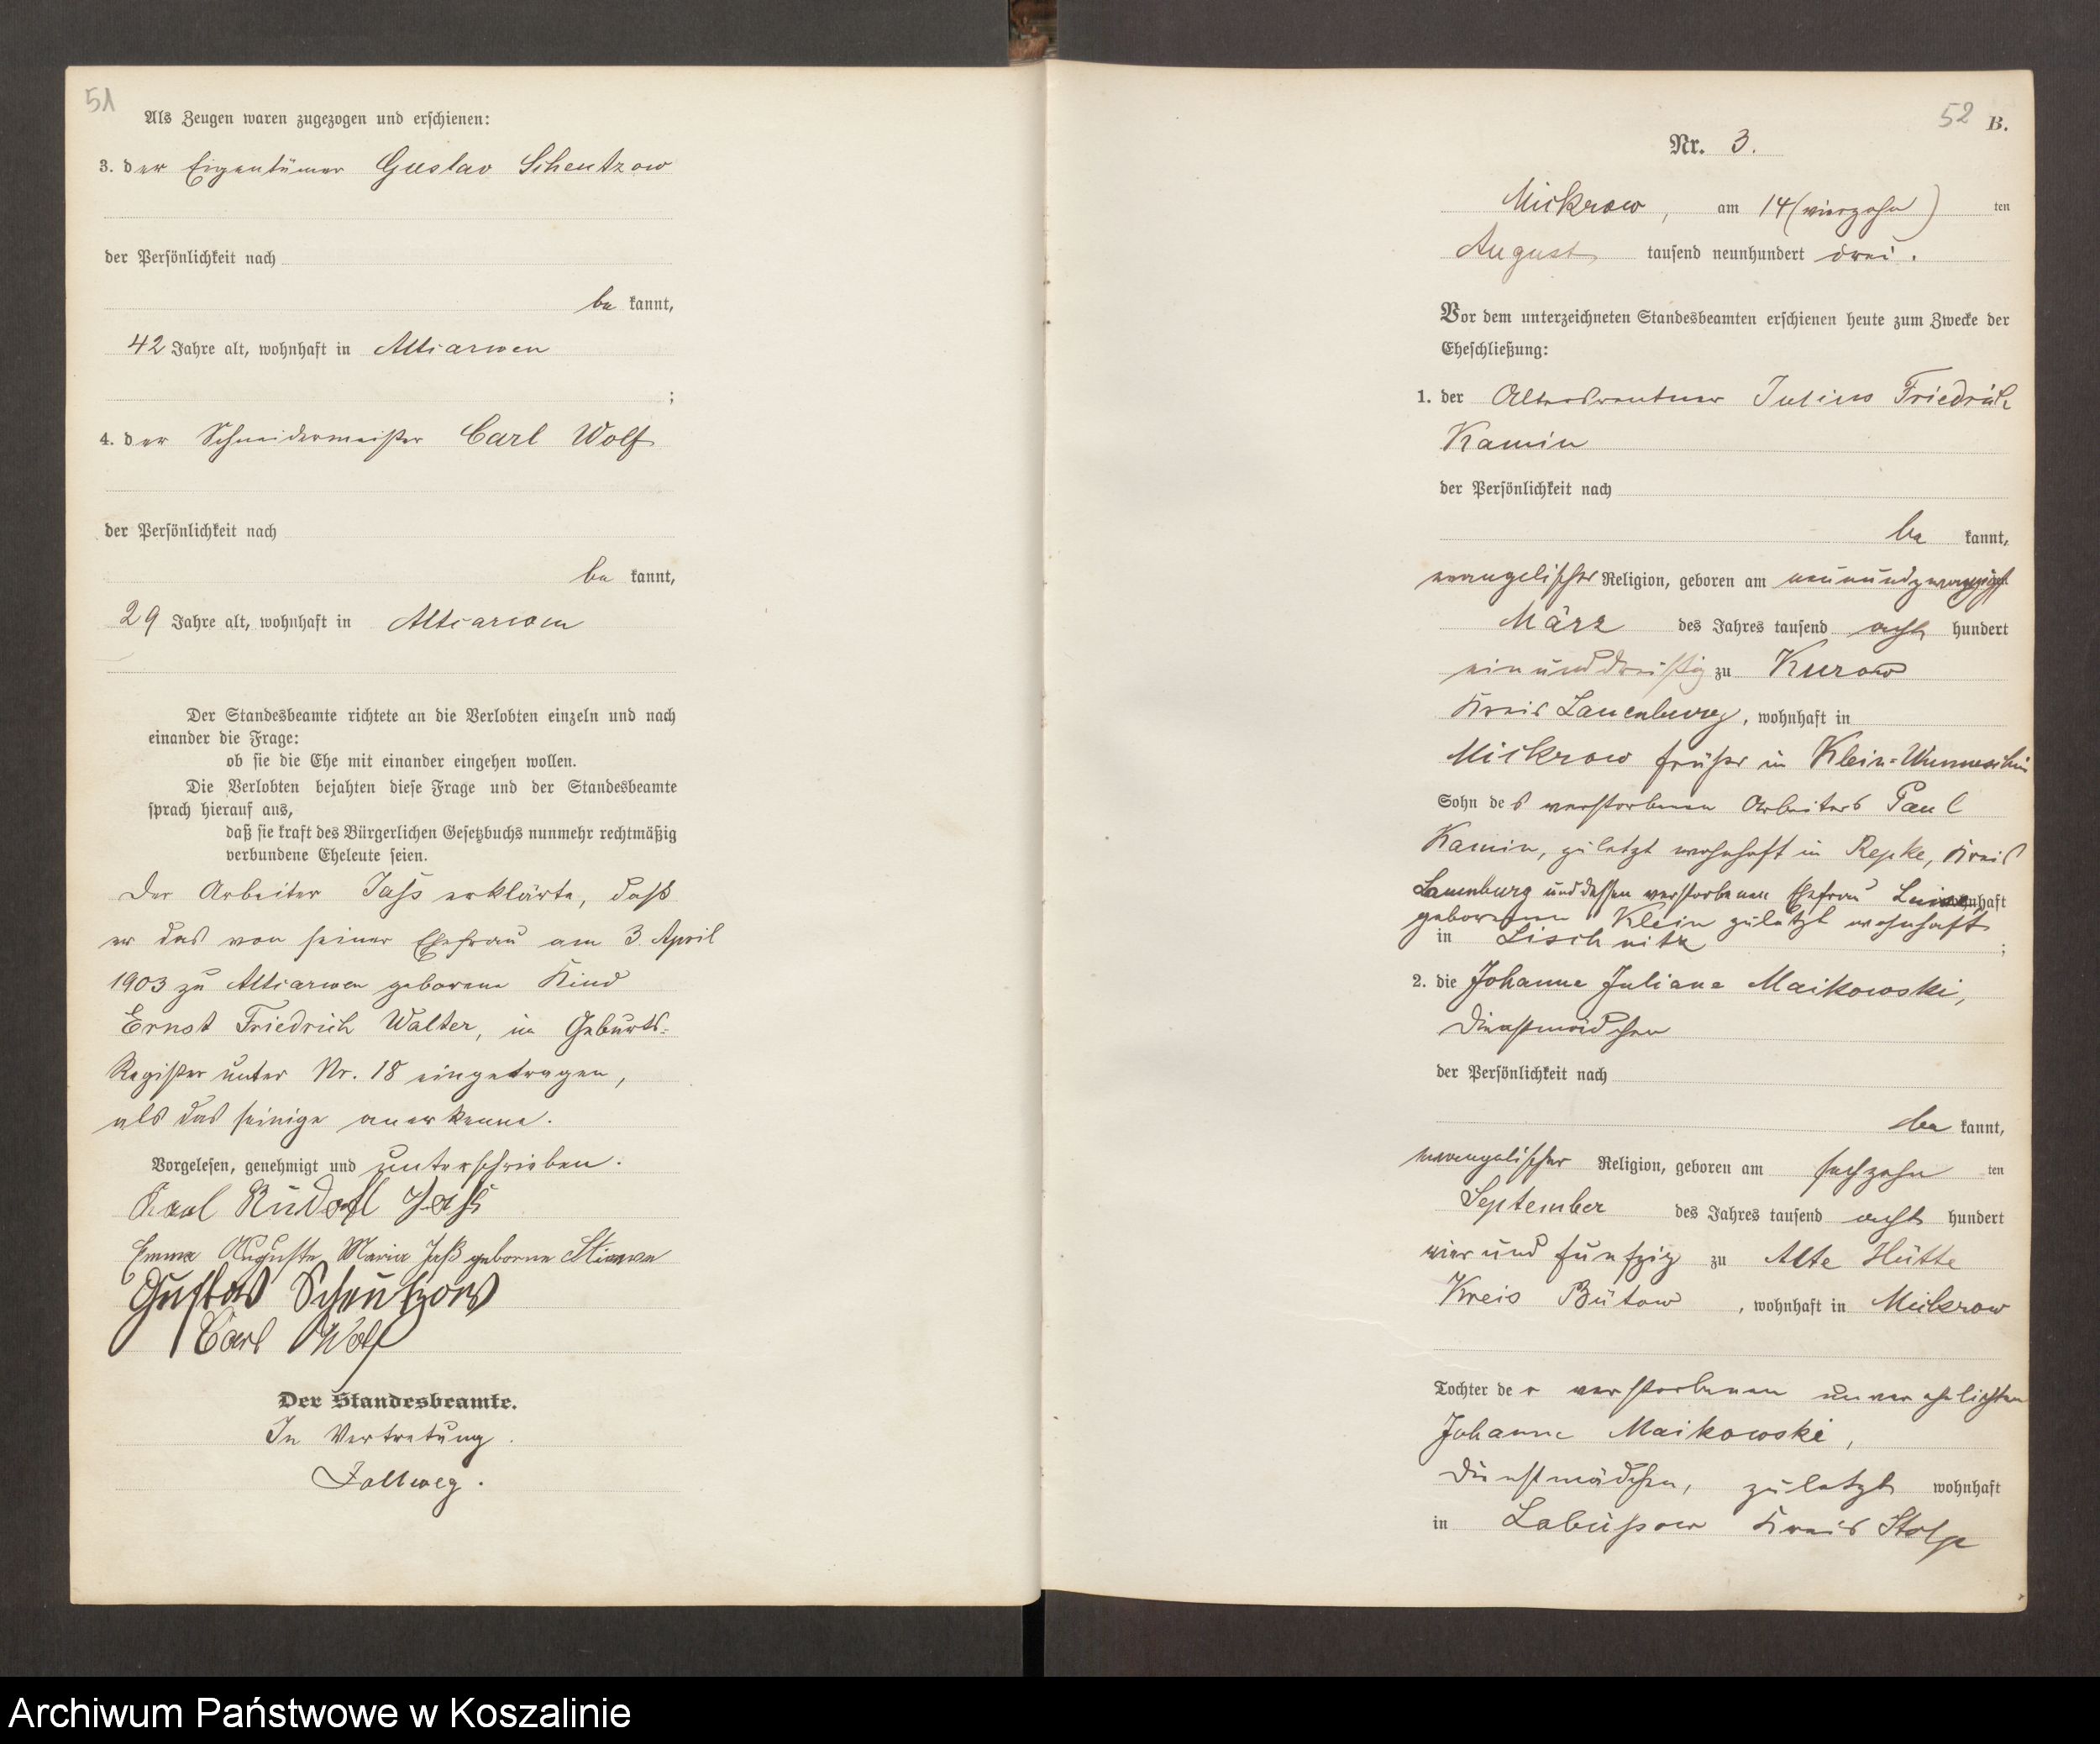 51
Als Zeugen waren zugezogen und erschienen:
3. der Eigentümer Gustav Scheutzow
der Persönlichkeit nach
be kannt,
42 Jahre alt, wohnhaft in Altjarwen
;
4. der Schneidermeister Carl Wolf
der Persönlichkeit nach
be kannt,
29 Jahre alt, wohnhaft in Altjarwen
Der Standesbeamte richtete an die Verlobten einzeln und nach
einander die Frage:
ob sie die Ehe mit einander eingehen wollen.
Die Verlobten bejahten diese Frage und der Standesbeamte
sprach hierauf aus,
daß sie kraft des Bürgerlichen Gesetzbuchs nunmehr rechtmäßig
verbundene Eheleute seien.
Der Arbeiter Jass erklärte, daß
er das von seiner Ehefrau am 3 April
1903 zu Altjarwen geborene Kind
Ernst Friedrich Walter, im Geburts-
Register unter Nr. 18 eingetragen,
als das seinige anerkenne.
Vorgelesen, genehmigt und unterschrieben.
Karl Rudolf Jass
Emma Auguste Maria Jaß geborne
Gustav Scheutzow
Carl Wolf
Der Standesbeamte.
In Vertretung.
Follweg.
52 B.
Nr. 3.
Mickrow, am 14 (vierzehn) ten
August tausend neunhundert drei.
Vor dem unterzeichneten Standesbeamten erschienen heute zum Zwecke der
Eheschließung:
1. der Altersrentner Julius Friedrich
Kamin
der Persönlichkeit nach
be kannt,
evangelischer Religion, geboren am neunundzwanzigst
März des Jahres tausend acht hundert
einunddreißig zu Kurow
Kreis Lauenburg, wohnhaft in
Mickrow früher in Klein-Wunneschin
Sohn des verstorbenen Arbeiters Paul
Kamin, zuletzt wohnhaft in Repke, Kreis
Lauenburg und dessen verstorbenen Ehefrau Luise wohnhaft
geborenen Klein zuletzt wohnhaft
in Lischnitz ;
2. die Johanne Juliane Maikowski,
Dienstmädchen
der Persönlichkeit nach
be kannt,
evangelischer Religion, geboren am sechzehn ten
September des Jahres tausend acht hundert
vier und fünfzig zu Alte Hütte
Kreis Bütow, wohnhaft in Mickrow
Tochter der verstorbenen unverehelichten
Johanne Maikowski,
Dienstmädchen, zuletzt wohnhaft
in Labüssow Kreis Stolp
Archiwum Państwowe w Koszalinie